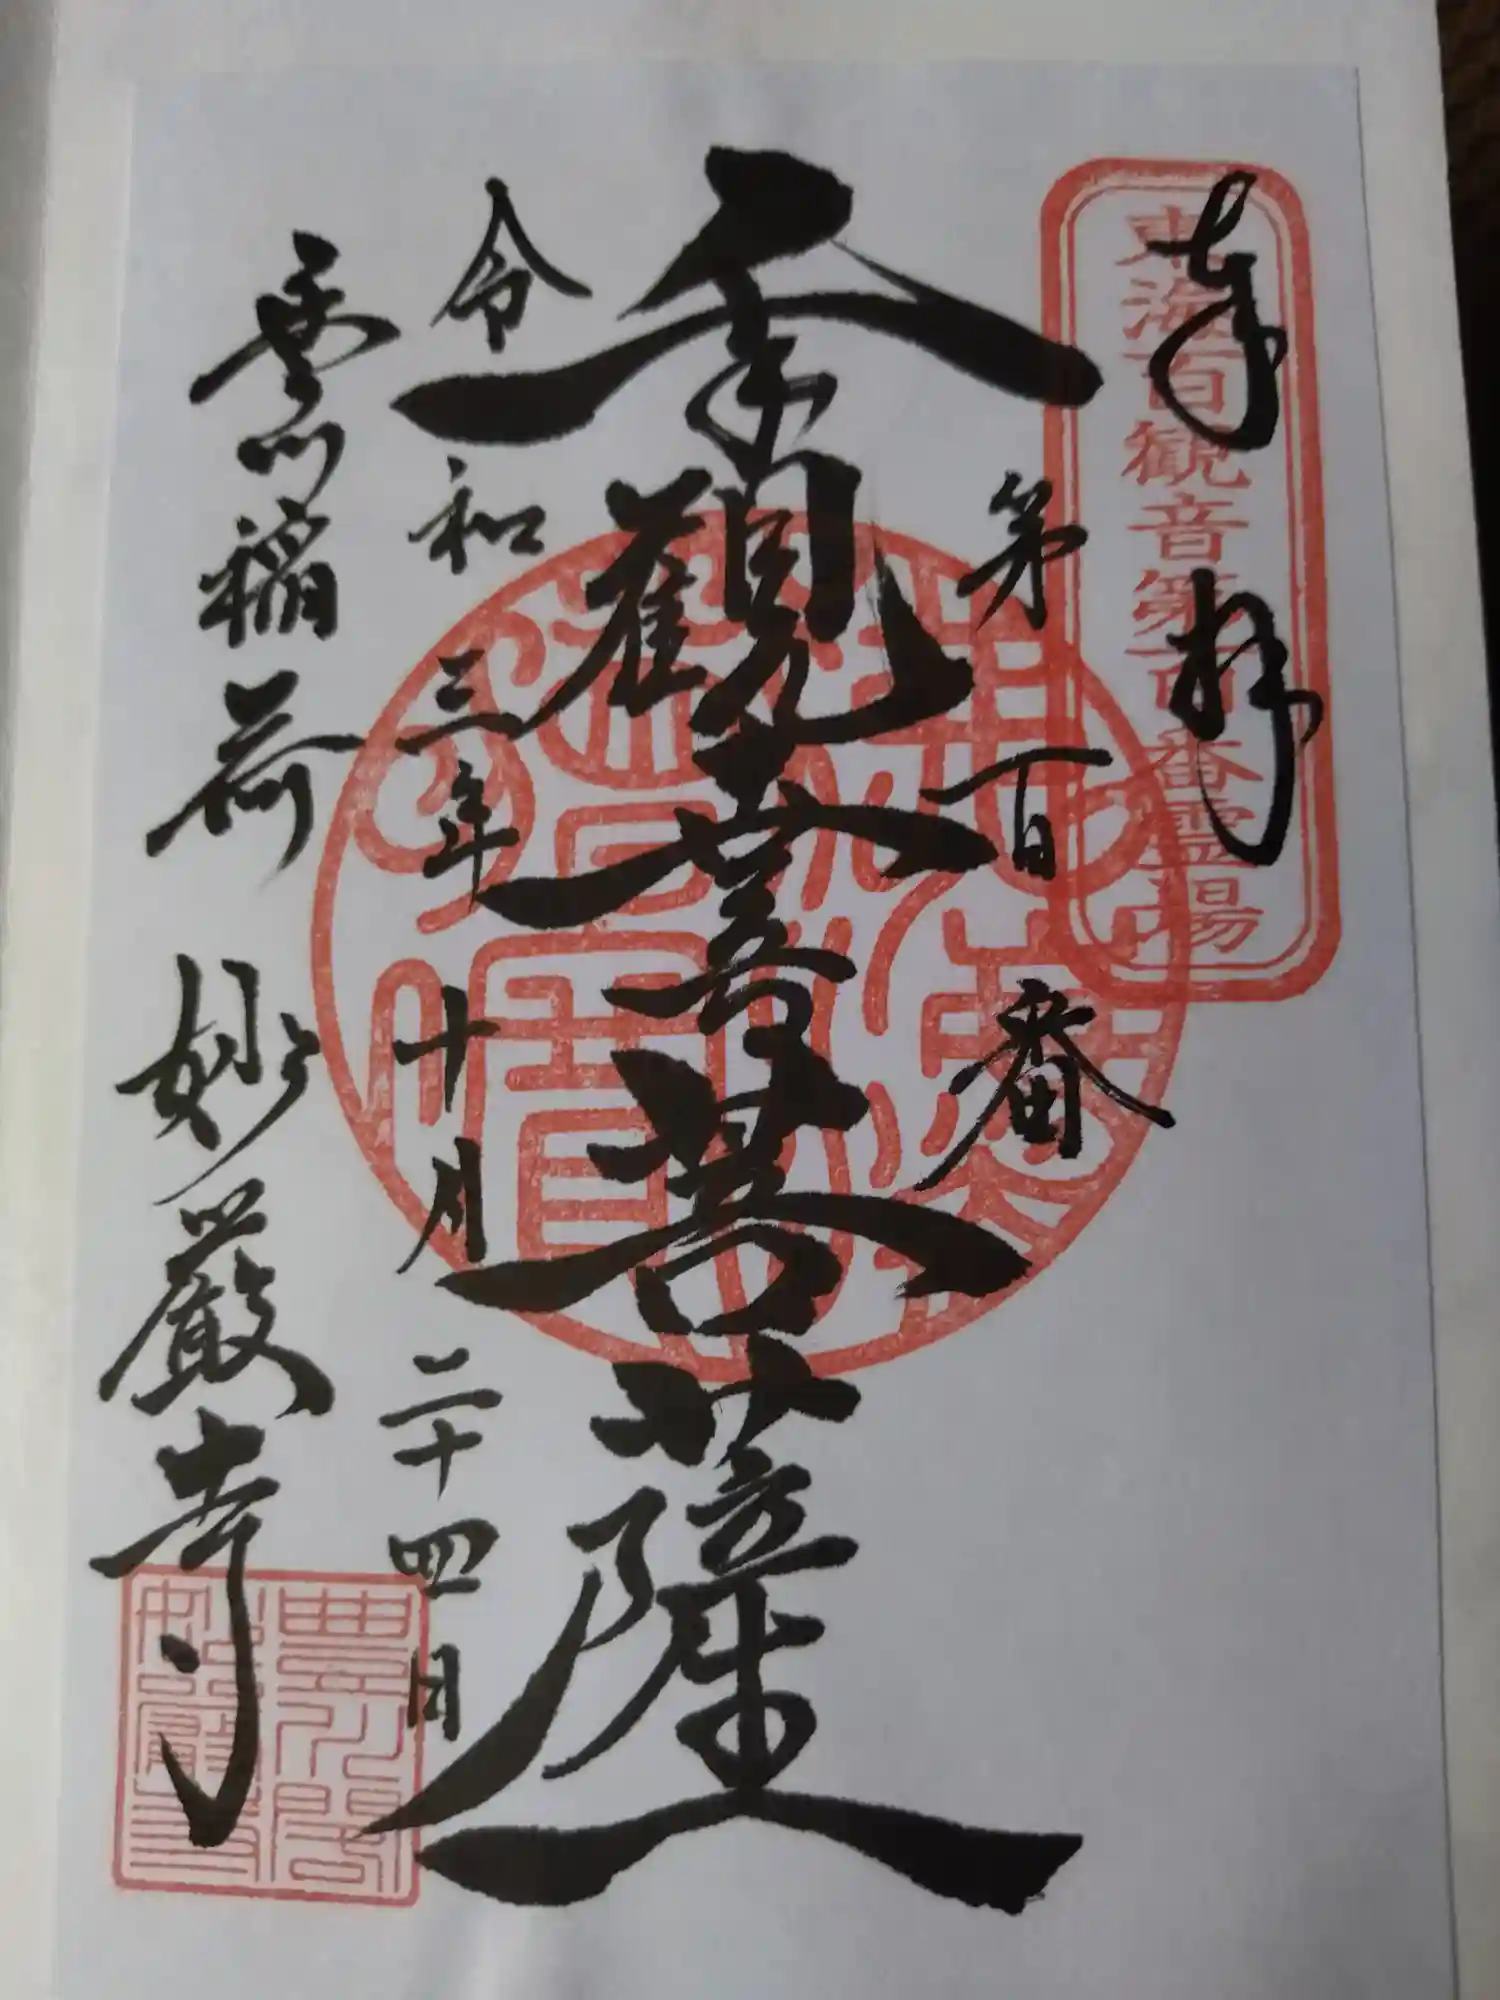 奉拝
東海百観音第百番霊場
第百番
千手觀音菩薩
令和三年十月二十四日
豊川稲荷 妙厳寺